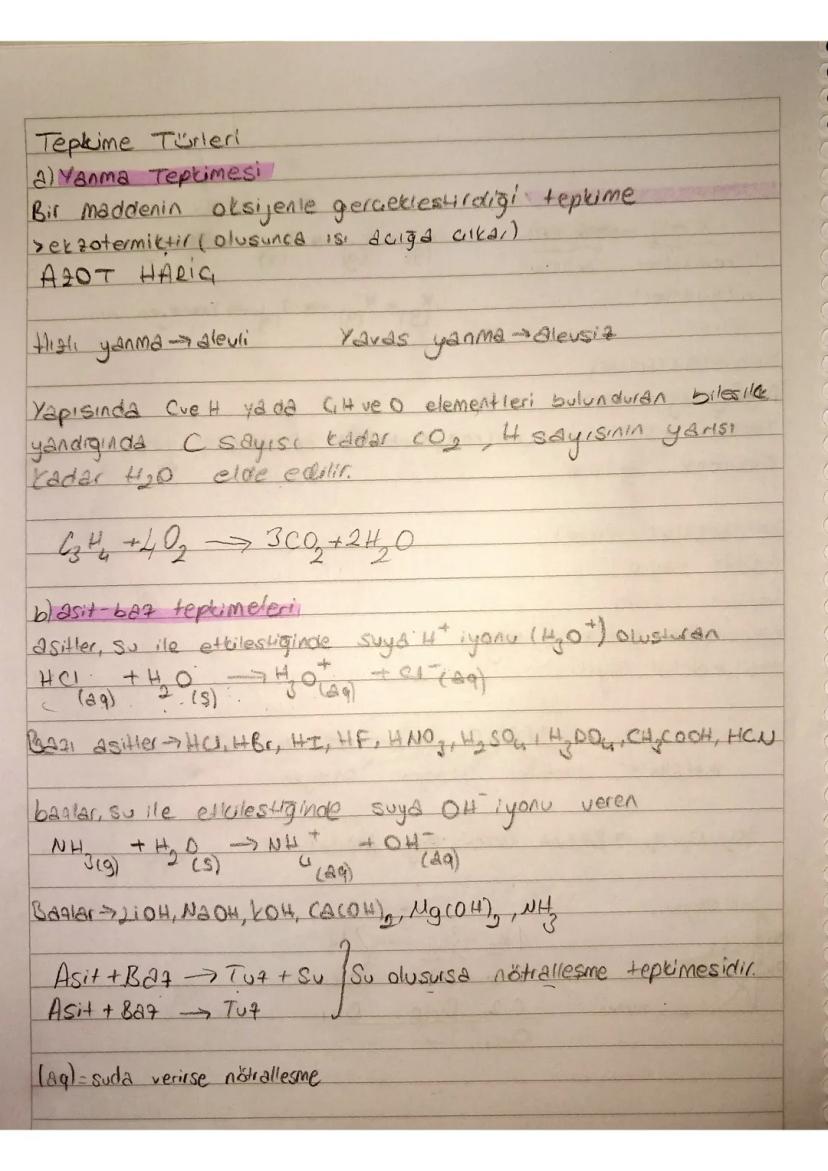 Tepkime Türleri
a) Yanma Tepkimesi
Bir maddenin oksijenle gerçekleştirdiği tepkime
>ekzotermiktir (oluşunca ısı açığa çıkar)
AZOT HARİÇ
Hızlı yanma → alevli Yavaş yanma → alevsiz
Yapısında C ve H ya da C,H ve O elementleri bulunduran bileşik
yandığında C sayısı kadar CO₂, H sayısının yarısı
kadar H₂O elde edilir.
C₃H₄ + 4O₂ → 3CO₂ + 2H₂O
b) asit-baz tepkimeleri
asitler, su ile etkileştiğinde suya H⁺ iyonu (H₃O⁺) oluşturan
HCl(aq) + H₂O(s) → H₃O⁺(aq) + Cl⁻(aq)
Bazı asitler → HCl, HBr, HI, HF, HNO₃, H₂SO₄, H₃PO₄, CH₃COOH, HCN
bazlar, su ile etkileştiğinde suya OH⁻ iyonu veren
NH₃(g) + H₂O(s) → NH₄⁺(aq) + OH⁻(aq)
Bazlar → LiOH, NaOH, KOH, Ca(OH)₂, Mg(OH)₂, NH₃
Asit + Baz → Tuz + Su } Su oluşursa nötralleşme tepkimesidir.
Asit + Baz → Tuz
(aq) = suda verirse nötralleşme